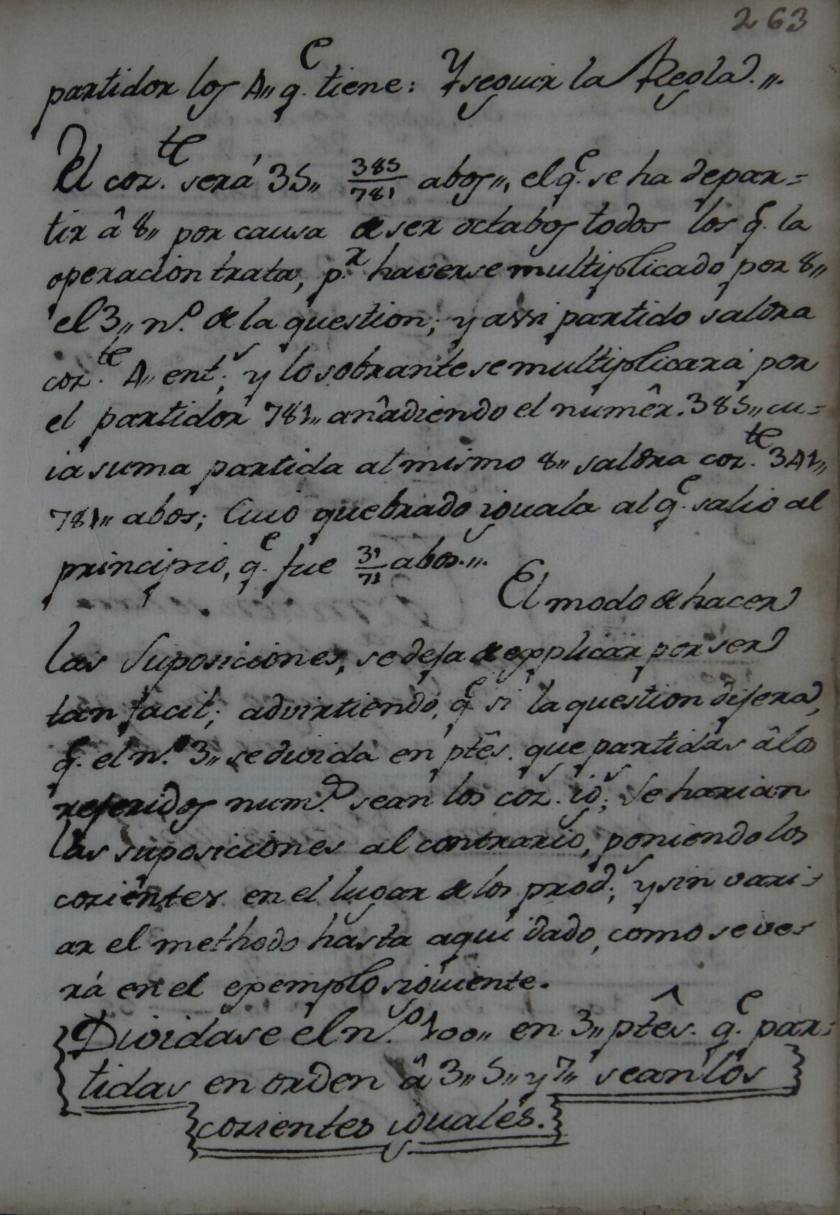 263
partidor los 4,, q.e tiene: Y seguir la Regla.,,.
El coz.te será 35,, 385/781 abos,, el q.e se ha de par=
tir â 8,, por causa de ser octabos todos los q.e la
operacion trata, p.r haverse multiplicado por 8,,
el 3,, n.o de la question; y assi partido saldra
coz.te 4,, ent.s; y lo sobrante se multiplicará por
el partidor 781,, añadiendo el numêr. 385,, cu=
ia suma partida al mismo 8,, saldra coz.te 341,,
781,, abos; Cuio quebrado yguala al q.e salio al
principio, q.e fue 31/71 abos.,,.
El modo de hacer
las Suposiciones, se deja de explicar por ser
tan facil; advirtiendo, q.e si la question dijera,
q.e el n.o 3,, se divida en ptês. que partidas â los
referidos num.s sean los coz. ig.s; Se harian
las suposiciones al contrario, poniendo los
cozientes en el lugar de los prod.s; y sin vari=
ar el methodo hasta aqui dado, como se ve=
rá en el exemplo siguiente.
Dividase el n.o 100,, en 3,, ptês. q.e par=
tidas en orden â 3,, 5,, y 7,, sean los
cozientes iguales.